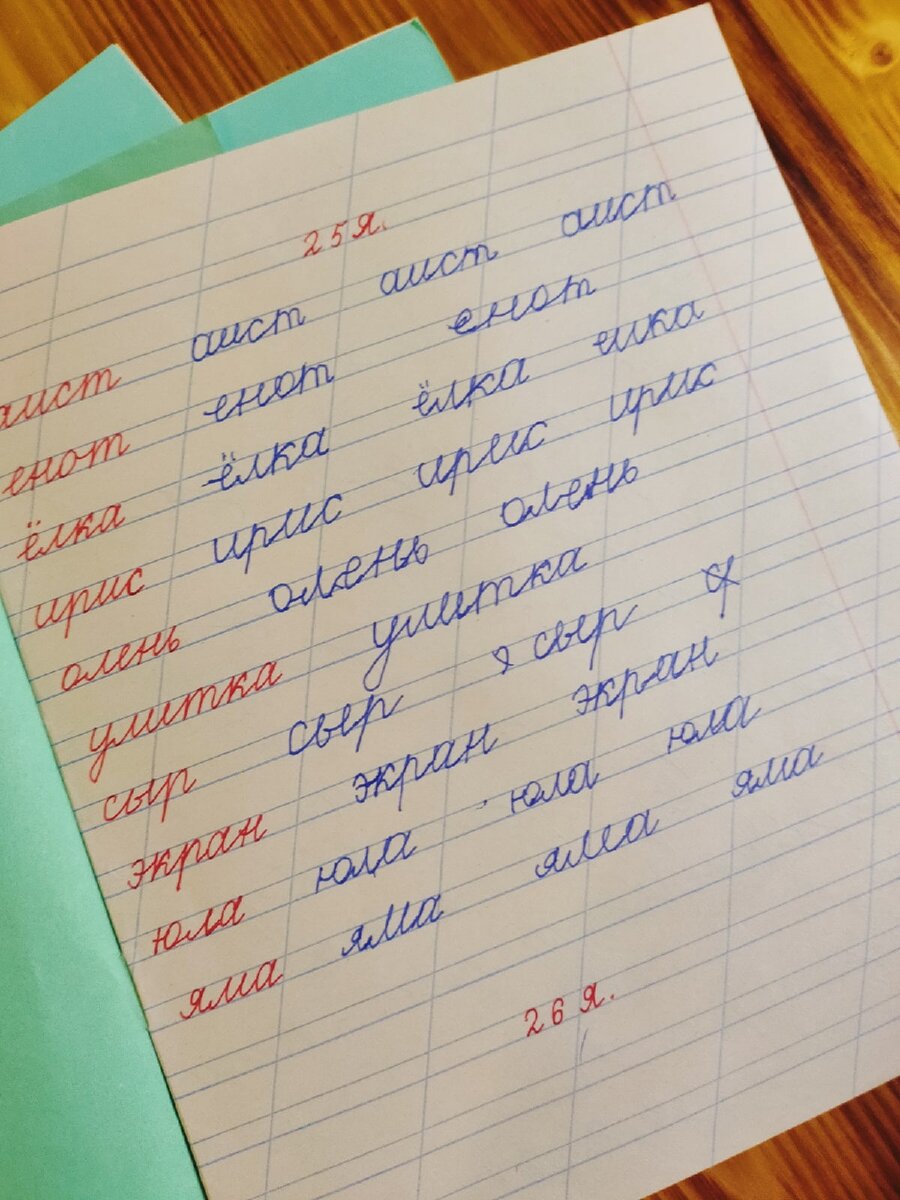 25 Я.
аист аист аист аист
енот енот енот
ёлка ёлка ёлка елка
ирис ирис ирис ирис
олень олень олень
улитка улитка
сыр сыр сыр
экран экран экран
юла юла юла юла
яма яма яма яма
26 Я.